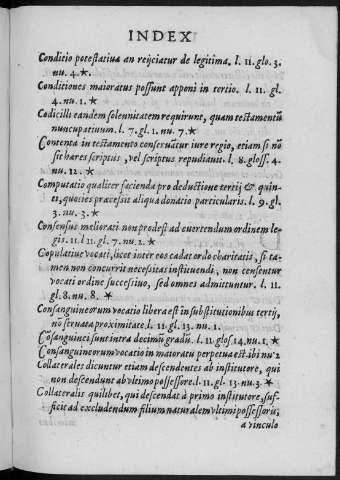 INDEX
Conditio potestatiua an reijciatur de legitima. l. 11. glo. 3.
nu. 4. ★.
Conditiones maioratus possunt apponi in tertio. l. 11. gl.
4. nu. 1. ★
Codicilli eandem solennitatem requirunt, quam testamentū
nuncupatiuum. l. 7. gl. 1. nu. 7. ★
Contenta in testamento conseruātur iure regio, etiam si nō
sit hæres scriptus, vel scriptus repudiauit. l. 8. gloss. 4.
nu. 12. ★
Computatio qualiter facienda pro deductione tertij & quin-
ti, quoties præcessit aliqua donatio particularis. l. 9. gl.
3. nu. 3. ★
Consensus meliorati non prodest ad euertendum ordinem le-
gis. 11. l 11. gl. 7. nu. 1. ★
Copulatiue vocati, licet inter eos cadat ordo charitatis, si ta-
men non concurrit necessitas instituendi, non censentur
vocati ordine successiuo, sed omnes admittuntur. l. 11.
gl. 8. nu. 8. ★
Consanguineorum vocatio libera est in substitutionibus tertij,
nō seruata proximitate. l. 11. gl. 13. nu. 1.
Cōsanguinei sunt intra decimū gradū. l. 11. glos. 14. nu. 1. ★
Consanguineorum vocatio in maioratu perpetua est. ibi nu 2
Collaterales dicuntur etiam descendentes ab institutore, qui
non descendunt ab vltimo possessore. l. 11. gl. 13. nu. 3. ★
Collateralis quilibet, qui descendat à primo institutore, suf-
ficit ad excludendum filium naturalem vltimi possessoris,
a vinculo